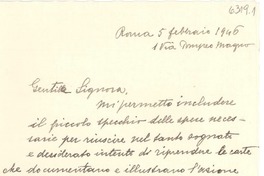 6319.1
Roma 5 febbraio 1946
1 Via Pompeo Magno
Gentile Signora,
mi permetto includere
il piccolo specchio delle spese neces-
sarie per riuscire nel tanto sognato
e desiderato intento di riprendere le carte
che documentano e illustrano l'azione